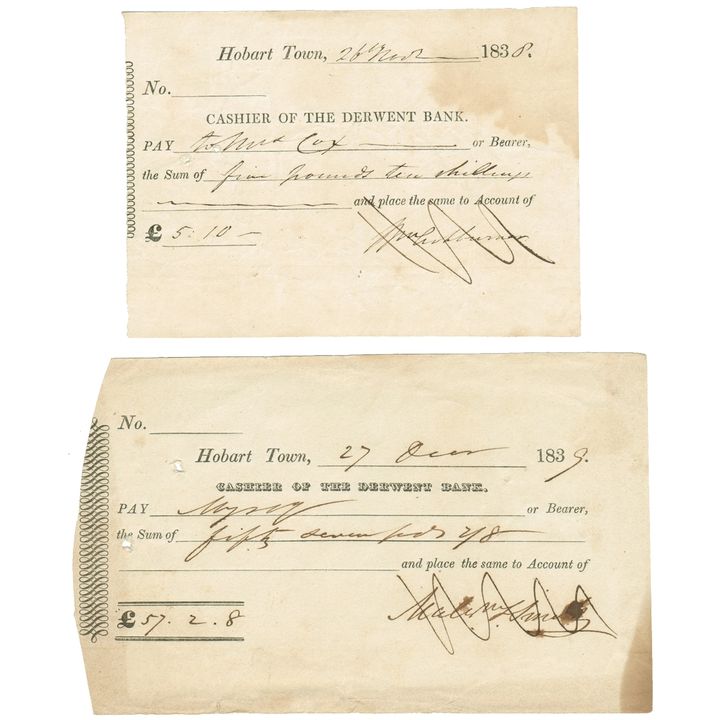 Hobart Town, 26th Novr 1838.
No.
CASHIER OF THE DERWENT BANK.
PAY to Mrs Cox or Bearer,
the Sum of five pounds ten shillings
and place the same to Account of
£ 5.10 –
No.
Hobart Town, 27 Decr 1839.
CASHIER OF THE DERWENT BANK.
PAY Myself or Bearer,
the Sum of fifty seven pds 2/8
and place the same to Account of
£ 57. 2. 8
Smith